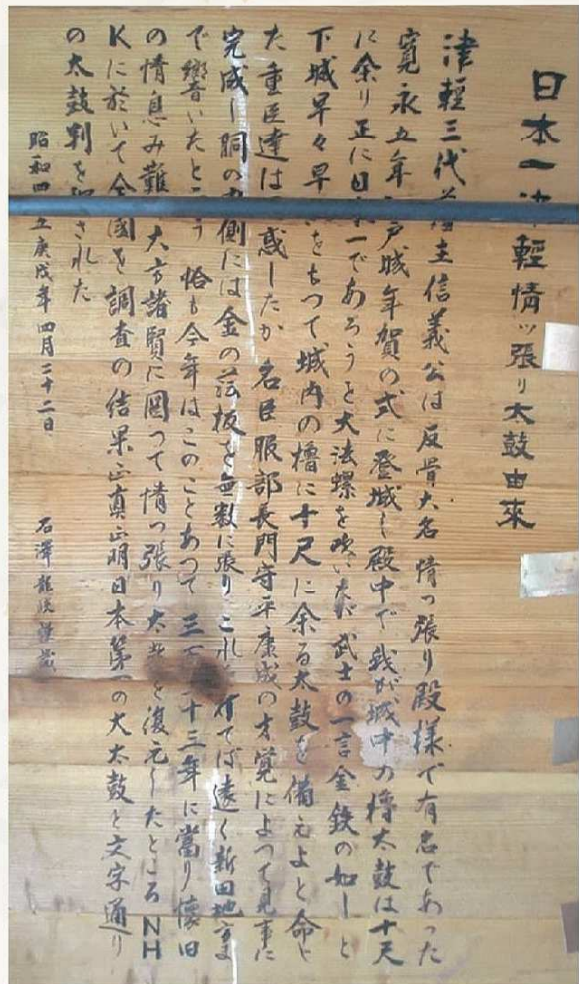 日本一津軽情ッ張り太鼓由来
津軽三代藩主信義公は反骨大名情っ張り殿様で有名であった
寛永五年 戸城年賀の式に登城し殿中で我が城中の櫓太鼓は十尺
に余り正に日本一であろうと大法螺を吹いたが武士の一言金鉄の如しと
下城早々早 をもって城内の櫓に十尺に余る太鼓を備えよと命じ
た重臣達は 惑したが名臣服部長門守平康成の才覚によって見事に
完成し胴の内側には金の箔板を無数に張りこれ 打てば遠く新田地方ま
で響いたという 恰も今年はこのことあって三百 十三年に當り懐旧
の情息み難 大方諸賢に図って情っ張り太鼓を復元したところNH
Kに於いて全國を調査の結果正真正明日本第一の大太鼓と文字通り
の太鼓判を された
昭和四十五庚戌年四月二十二日
石澤龍